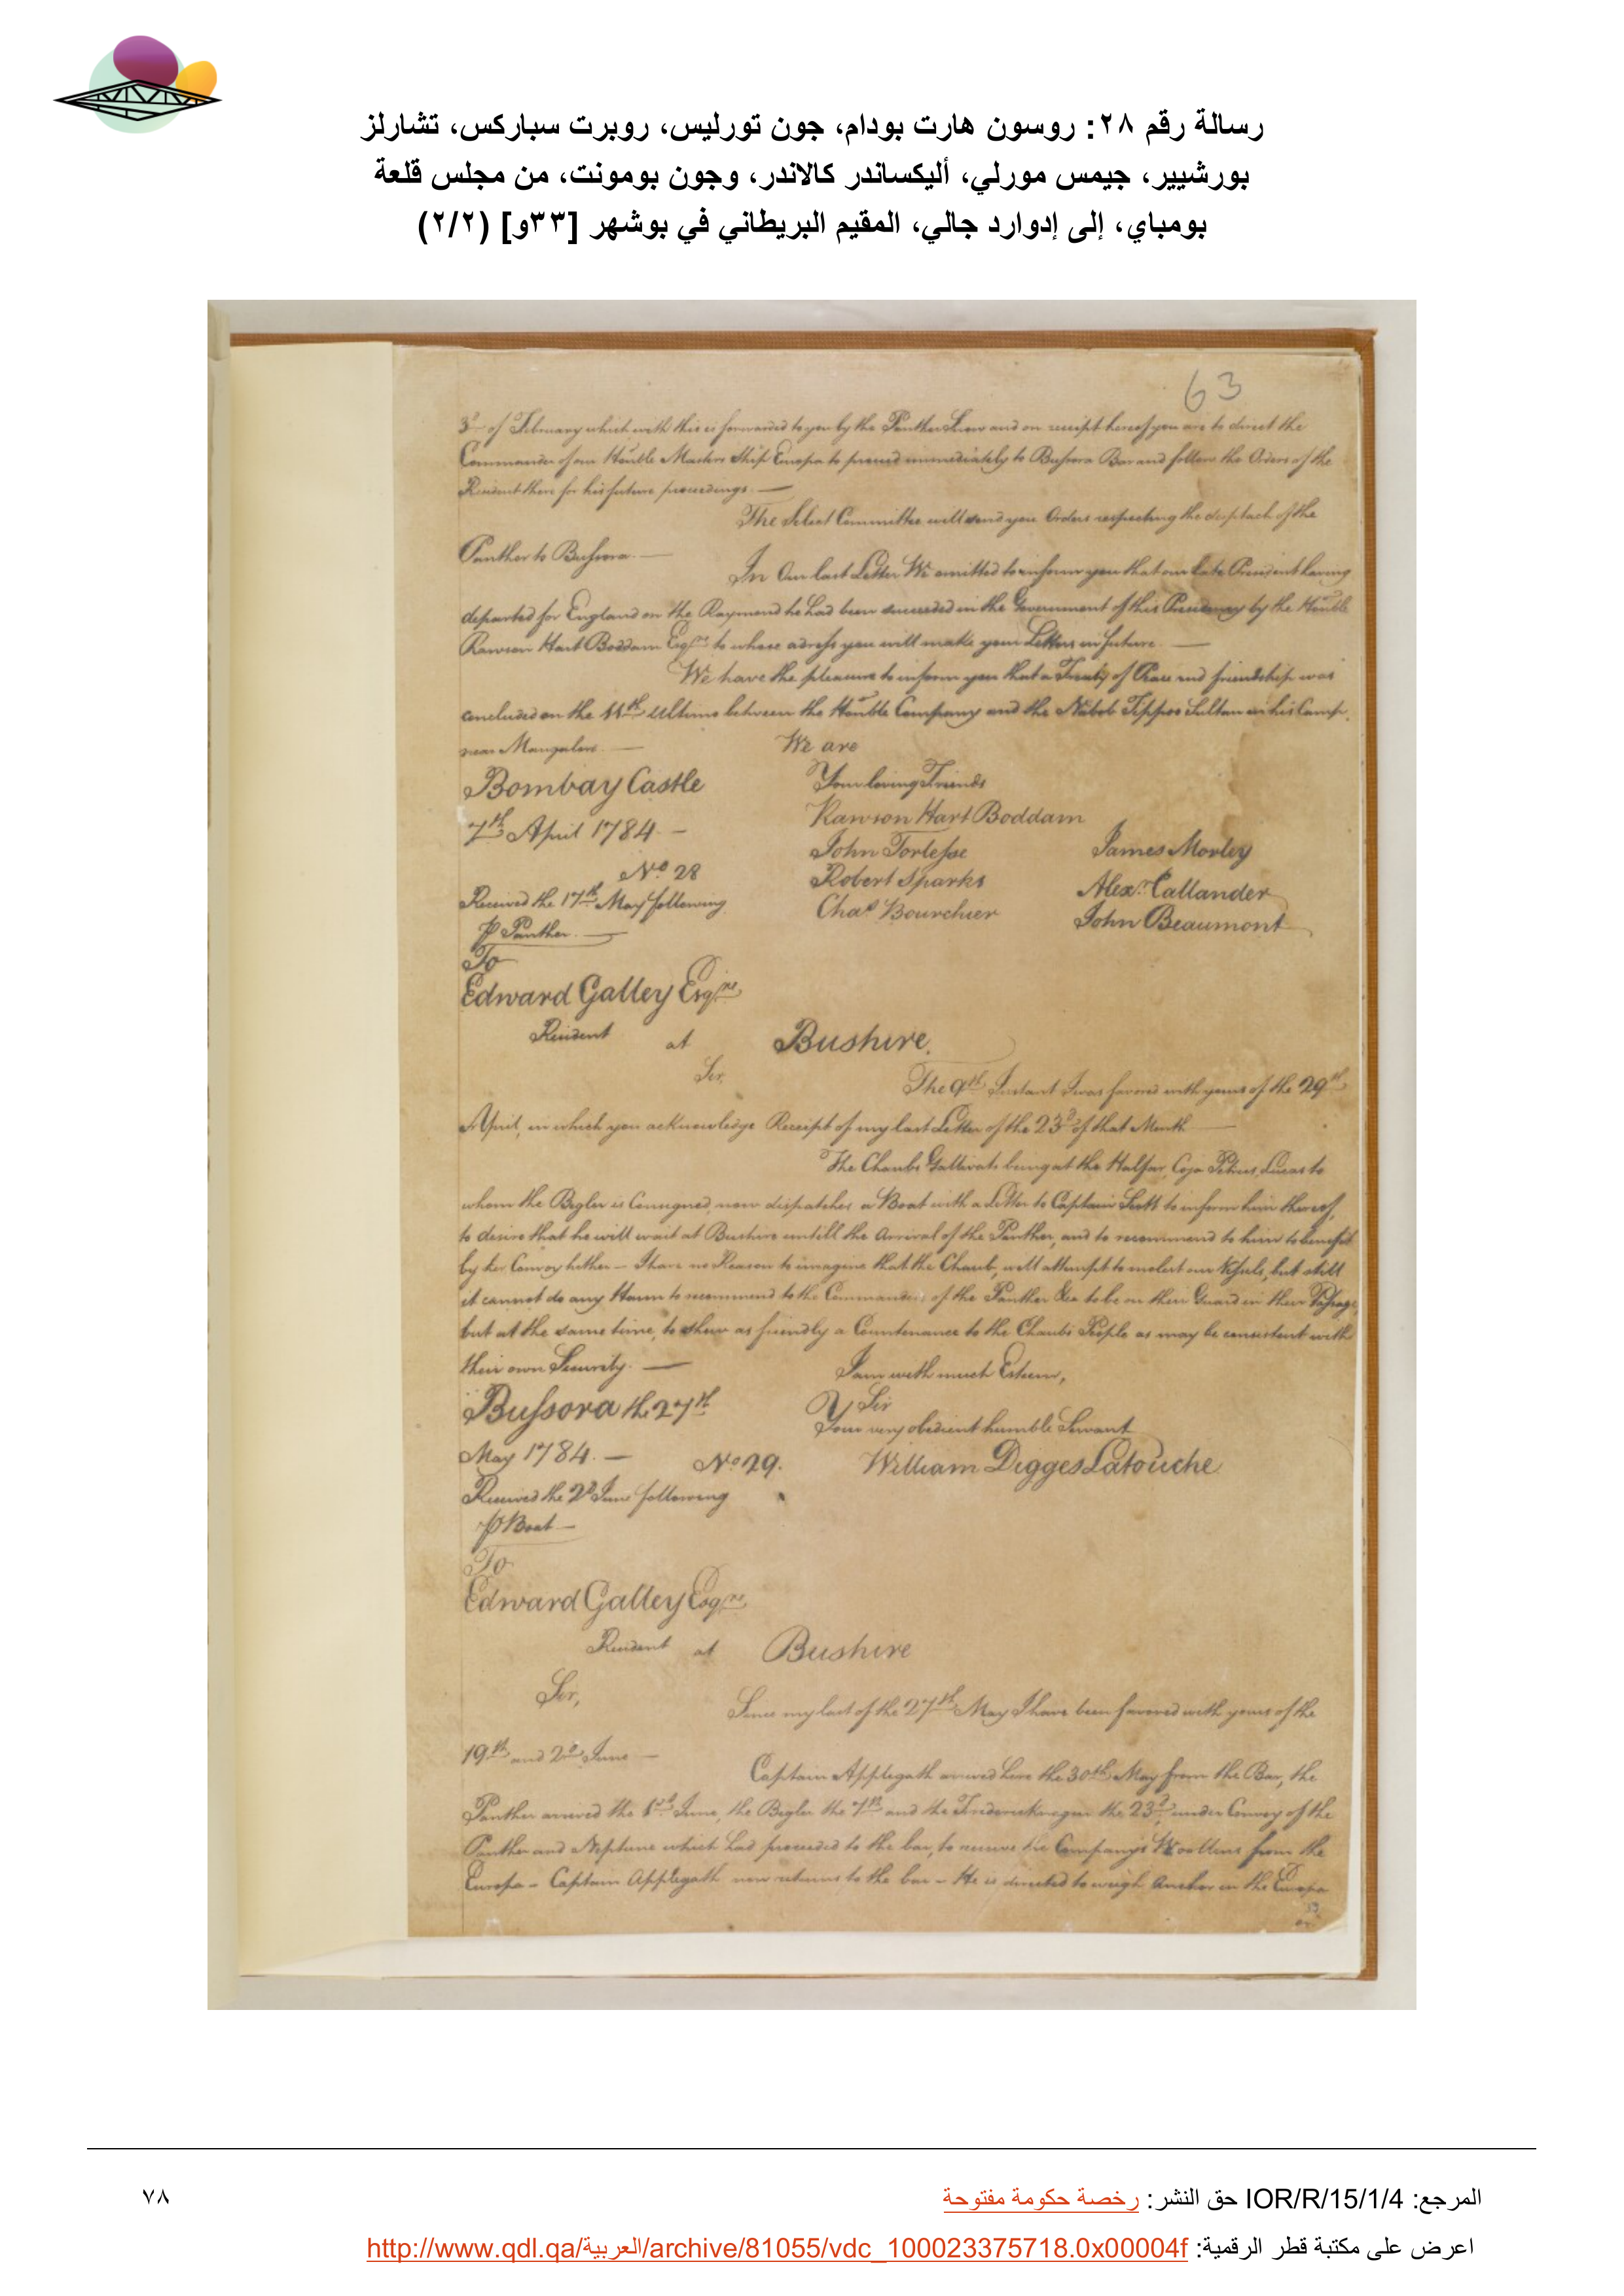 رسالة رقم ٢٨: روسون هارت بودام، جون تورليس، روبرت سباركس، تشارلز
بورشيير، جيمس مورلي، أليكساندر كالاندر، وجون بومونت، من مجلس قلعة
بومباي، إلى إدوارد جالي، المقيم البريطاني في بوشهر [٣٣و] (٢/٢)
63
3d of February which with this is forwarded to you by the Panther Snow and on receipt hereof you are to direct the
Commander of our Honble Masters Ship Europa to proceed immediately to Bussora Bar and follow the Orders of the
Resident there for his future proceedings. —
The Select Committee will send you Orders respecting the dispatch of the
Panther to Bussora. —
In Our last Letter We omitted to inform you that our late President having
departed for England on the Raymond he had been succeeded in the Government of this Presidency by the Honble
Rawson Hart Boddam Esqre to whose adress you will make your Letters in future. —
We have the pleasure to inform you that a Treaty of Peace and friendship was
concluded on the 11th Ultimo between the Honble Company and the Nabob Tippoo Sultan in his Camp
near Mangalore. —
We are
Bombay Castle
Your loving Friends
7th April 1784. —
Rawson Hart Boddam
John Torlesse
James Morley
No 28
Robert Sparks
Alexr Callander
Received the 17th May following
Chas Bourchier
John Beaumont
P Panther. —
To
Edward Galley Esqre
Resident at Bushire.
Sir,
The 9th Instant I was favored with yours of the 29th
April, in which you acknowledge Receipt of my last Letter of the 23d of that Month —
The Chaub's Gallivats being at the Halfar, Coja Petrus Lucas to
whom the Begler is Consigned, now dispatches a Boat with a Letter to Captain Scott to inform him thereof,
to desire that he will wait at Bushire untill the Arrival of the Panther, and to recommend to him to benefit
by her Convoy hither — I have no Reason to imagine that the Chaub, will attempt to molest our Vessels, but still
it cannot do any Harm to recommend to the Commanders of the Panther &ca to be on their Guard in their Passage,
but at the same time, to shew as friendly a Countenance to the Chaub's People as may be consistent with
their own Security. —
I am with much Esteem,
Bussora the 27th
Sir
Your very obedient humble Servant
May 1784. —
No 29.
William Digges Latouche
Received the 2d June following
P Boat —
To
Edward Galley Esqre
Resident at Bushire
Sir,
Since my last of the 27th May I have been favored with yours of the
19th and 2d June —
Captain Applegath arrived here the 30th May from the Bar, the
Panther arrived the 1st June, the Begler the 7th and the Fredericknagur the 23d under Convoy of the
Panther and Neptune which had proceeded to the bar, to receive the Company's Woollens from the
Europa — Captain Applegath now returns to the bar — He is directed to weigh Anchor in the Europa
المرجع: IOR/R/15/1/4 حق النشر: رخصة حكومة مفتوحة
٧٨
اعرض على مكتبة قطر الرقمية: http://www.qdl.qa/العربية/archive/81055/vdc_100023375718.0x00004f